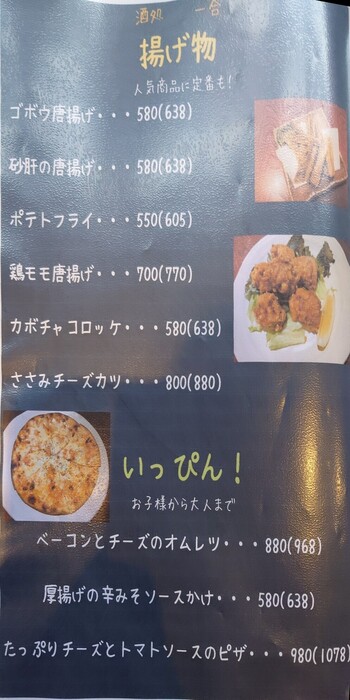 酒処 一合
揚げ物
人気商品に定番も!
ゴボウ唐揚げ・・・580(638)
砂肝の唐揚げ・・・580(638)
ポテトフライ・・・550(605)
鶏モモ唐揚げ・・・700(770)
カボチャコロッケ・・・580(638)
ささみチーズカツ・・・800(880)
いっぴん!
お子様から大人まで
ベーコンとチーズのオムレツ・・・880(968)
厚揚げの辛みそソースかけ・・・580(638)
たっぷりチーズとトマトソースのピザ・・・980(1078)